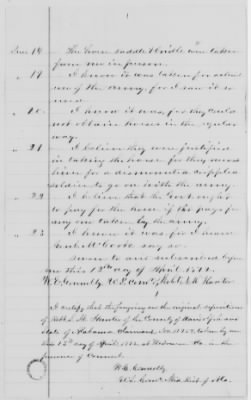 18 The horse saddle & bridle were taken
from me in person.
" 19. I know it was taken for actual
use of the army, for I saw it so
used.
" 20. I know it was, for they could
not obtain horses in the regular
way.
" 21 I believe they were justified
in taking the horse for they
him for a dismounted
soldier to go on with the army.
" 22. I believe that the Govt ought
to pay for the horse if they pay for
any one taken by the army.
" 23 I know it was for I heard
say so.
Sworn to and subscribed before
me this 12th day of April 1872.
I certify that the foregoing are the original depositions
of Robt L. H. Hunter of the County of and
state of Alabama Claimant taken by me
this 12th day of April 1872 at in the
presence of Counsel.
Wm. Connelly
U.S. Comr. Dist of Ala.